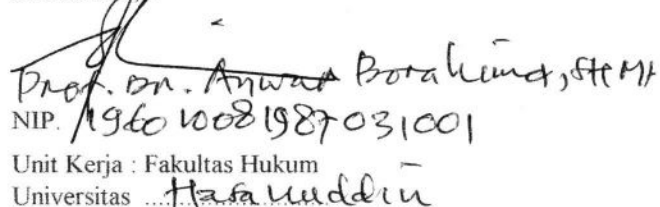 Prof. Dr. Anwar Borahima, SH, MH
NIP. 196010081987031001
Unit Kerja : Fakultas Hukum
Universitas ....Hasanuddin